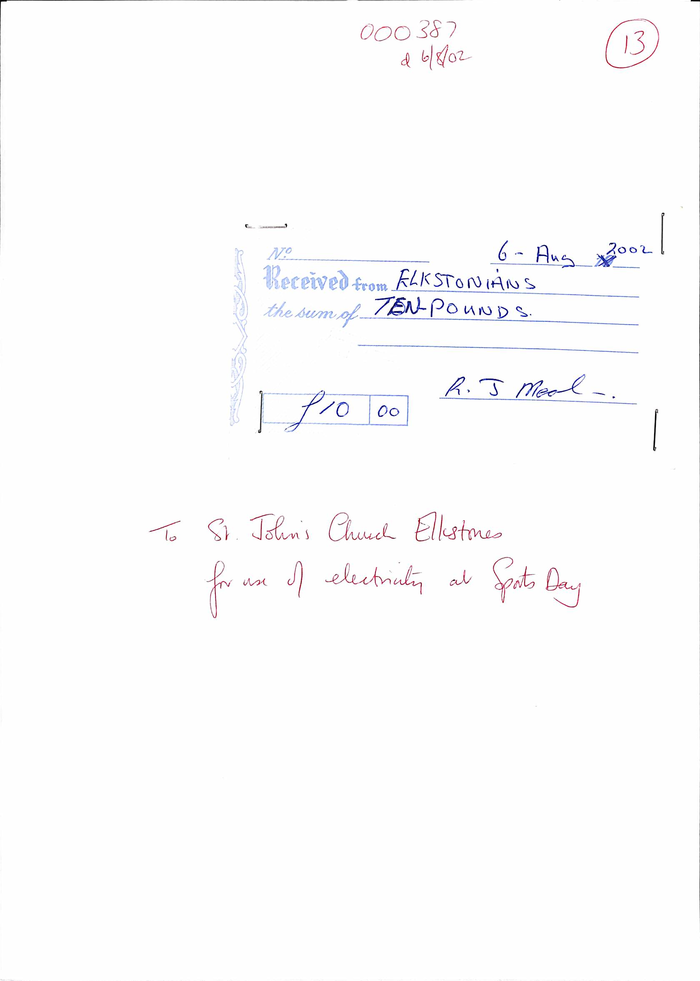 000387
d 6/8/02
13
No.
6 - Aug 2002
Received from ELKSTONIANS
the sum of TEN POUNDS.
R. J
£10 00
To St. John's Church Elkstones
for use of electricity at Sports Day